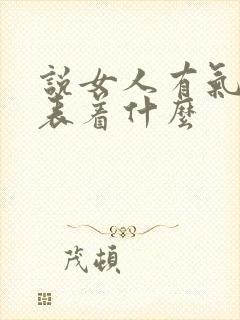 說女人有氣
表着什麼
茂頓